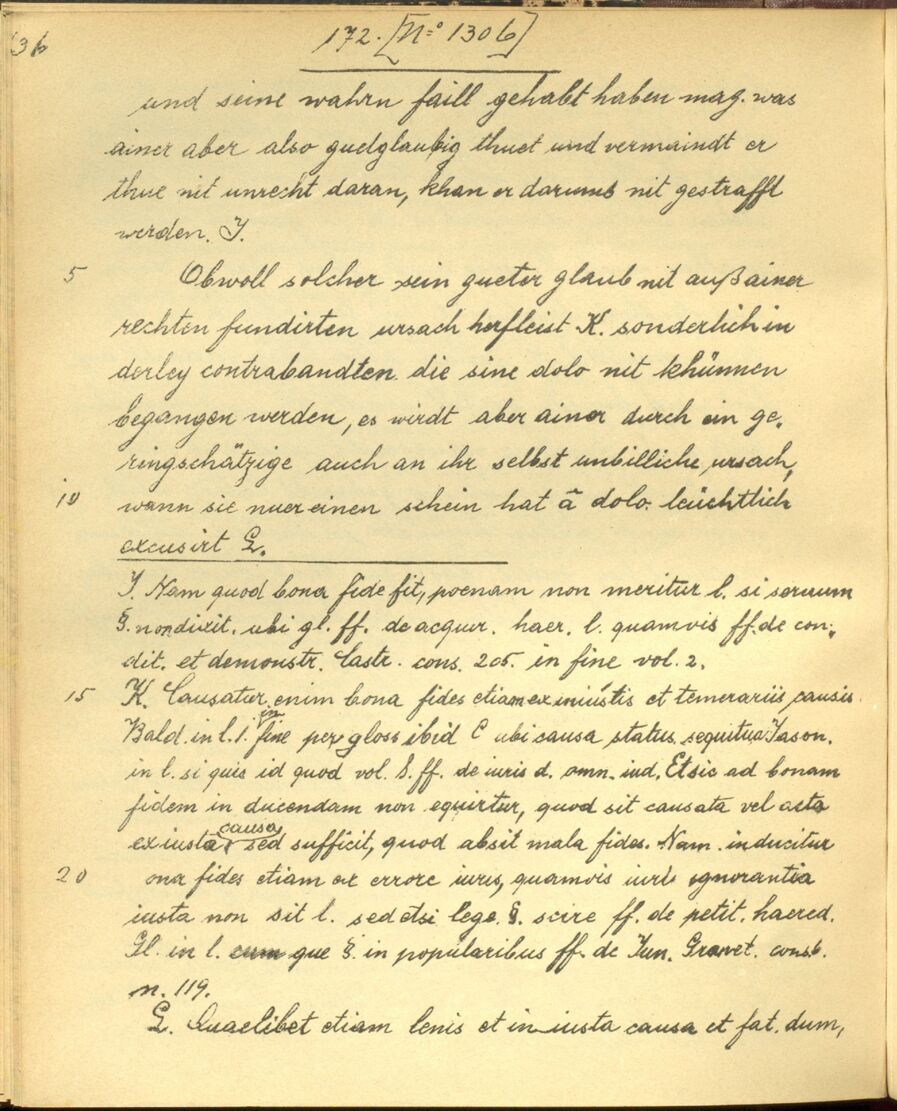 136
172. [No 1306]
und seine wahrn faill gehabt haben mag. was
ainer aber also guedglaubig thuet und vermaindt er
thue nit unrecht daran, khan er darumb nit gestrafft
werden. J.
5 Obwoll solcher sein gueter glaub nit auß ainer
rechten fundirten ursach herfleist K. sonderlich in
derley contrabandten die sine dolo nit khünnen
begangen werden, es wirdt aber ainer durch ein ge.
ringschätzige auch an ihr selbst unbilliche ursach,
10 wann sie nuer einen schein hat â dolo leüchtlich
excusirt L.
J. Nam quod bona fide fit, poenam non meritur l. si seruum
§. non dixit. ubi gl. ff. de acquir. haer. l. quamvis ff. de con.
dit. et demonstr. Castr. cons. 205. in fine vol. 2.
15 K. Causatur enim bona fides etiam ex iniustis et temerariis causis.
Bald. in l. 1. in fine per gloss ibid C ubi causa status sequitur Jason.
in l. si quis id quod vol. 8. ff. de iuris d. omn. iud. Et sic ad bonam
fidem in ducendam non equirtur, quod sit causata vel asta
ex iusta causa sed sufficit, quod absit mala fides. Nam inducitur
20 ona fides etiam ex errore iuris, quamvis iuris ignorantia
iusta non sit l. sed etsi lege. §. scire ff. de petit. haered.
Gl. in l. que §. in popularibus ff. de Iun. Gravet. cons. 6.
n. 119.
L. Quaelibet etiam lenis et in iusta causa et fat. dum,